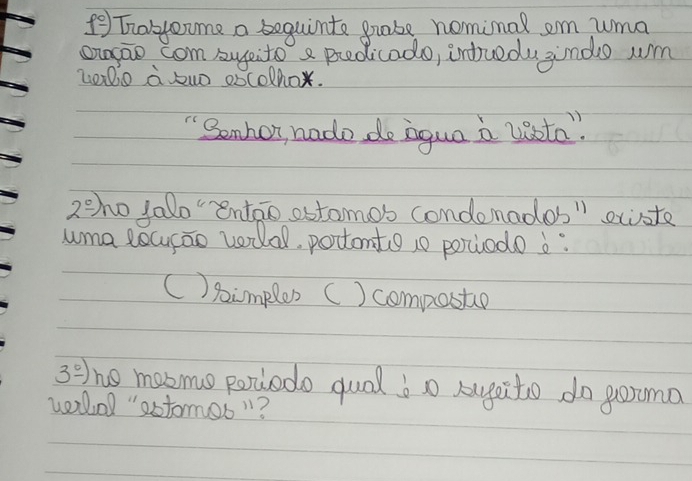 1º) Trasforme a seguinte frase nominal em uma
oração com sujeito e predicado, introduzindo um
verbo à sua escolha.
"Senhor, nada de água à vista".
2º) no fala "então estamos condenados" existe
uma locução verbal. portanto o periodo é:
( ) simples ( ) composto
3º) no mesmo periodo qual é o sujeito da forma
verbal "estamos"?